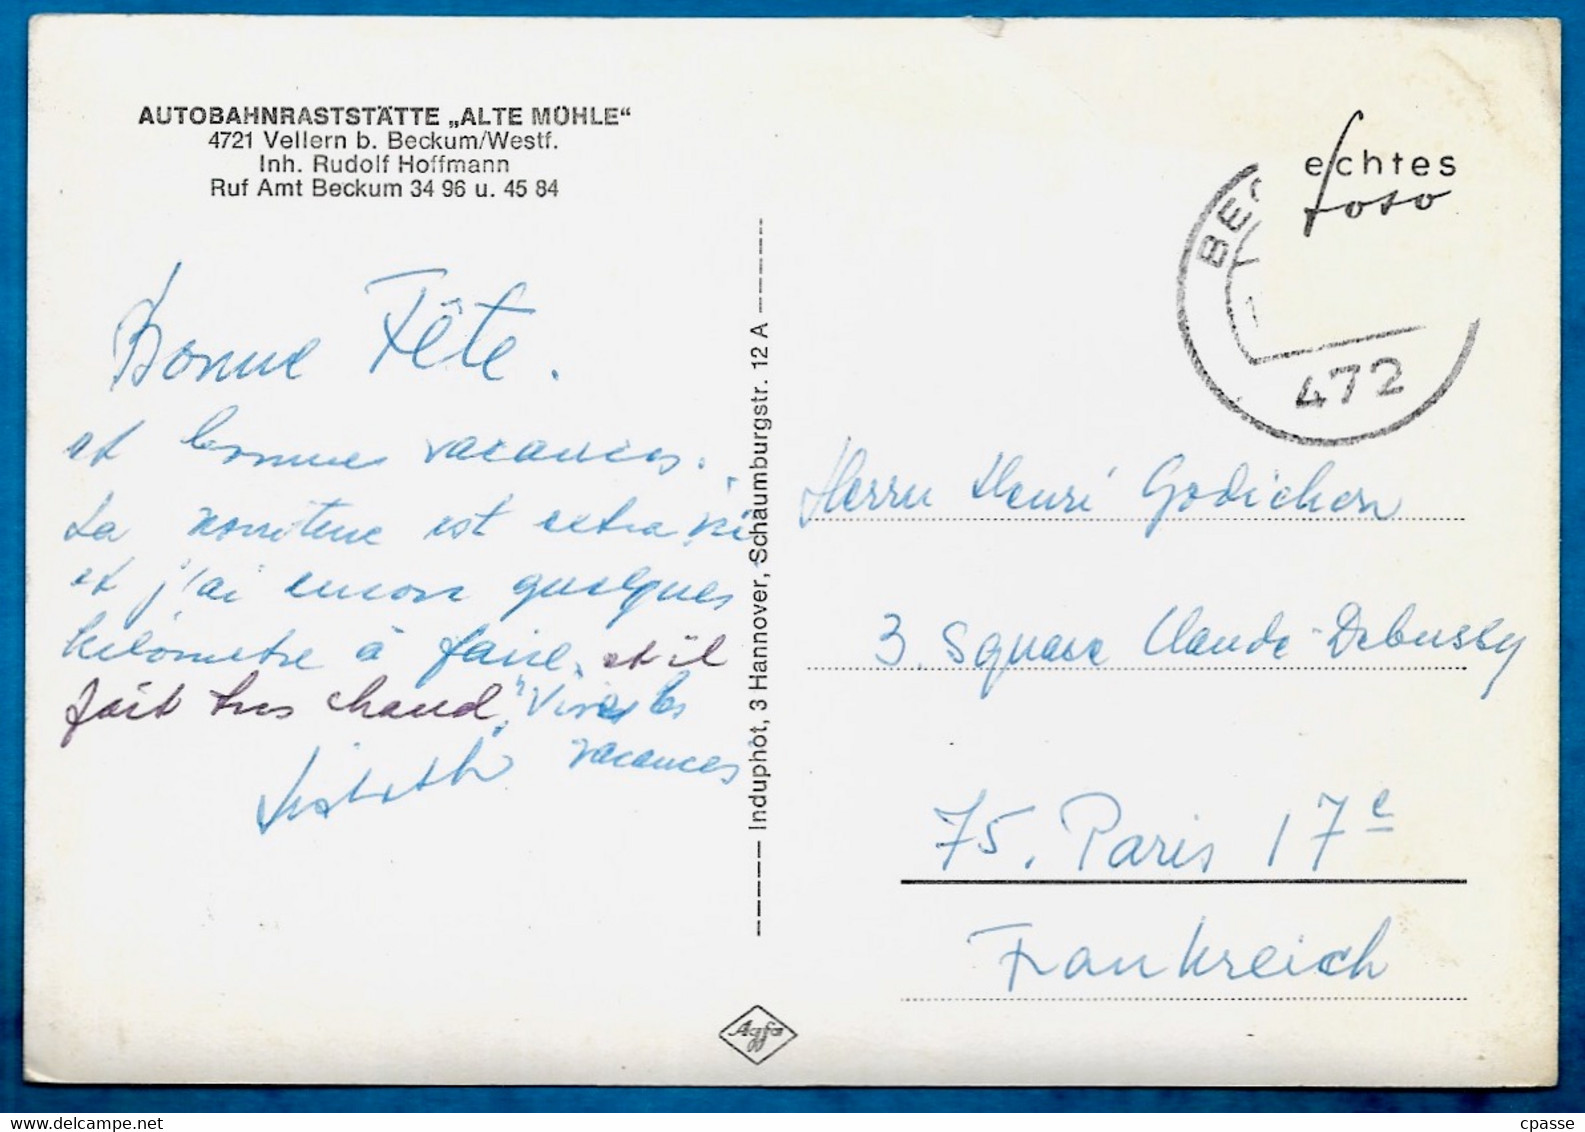 AUTOBAHNRASTSTÄTTE „ALTE MÜHLE“
4721 Vellern b. Beckum/Westf.
Inh. Rudolf Hoffmann
Ruf Amt Beckum 34 96 u. 45 84
Bonne Fête.
et bonnes vacances.
La nourriture est extra, ici
et j'ai encore quelques
kilomètre à faire, et il
fait très chaud, "Vives les
vacances
Induphot, 3 Hannover, Schaumburgstr. 12 A
echtes
foto
BEC
472
Herrn Henri Godichon
3. Square Claude-Debussy
75. Paris 17e
Frankreich
Agfa
cpasse